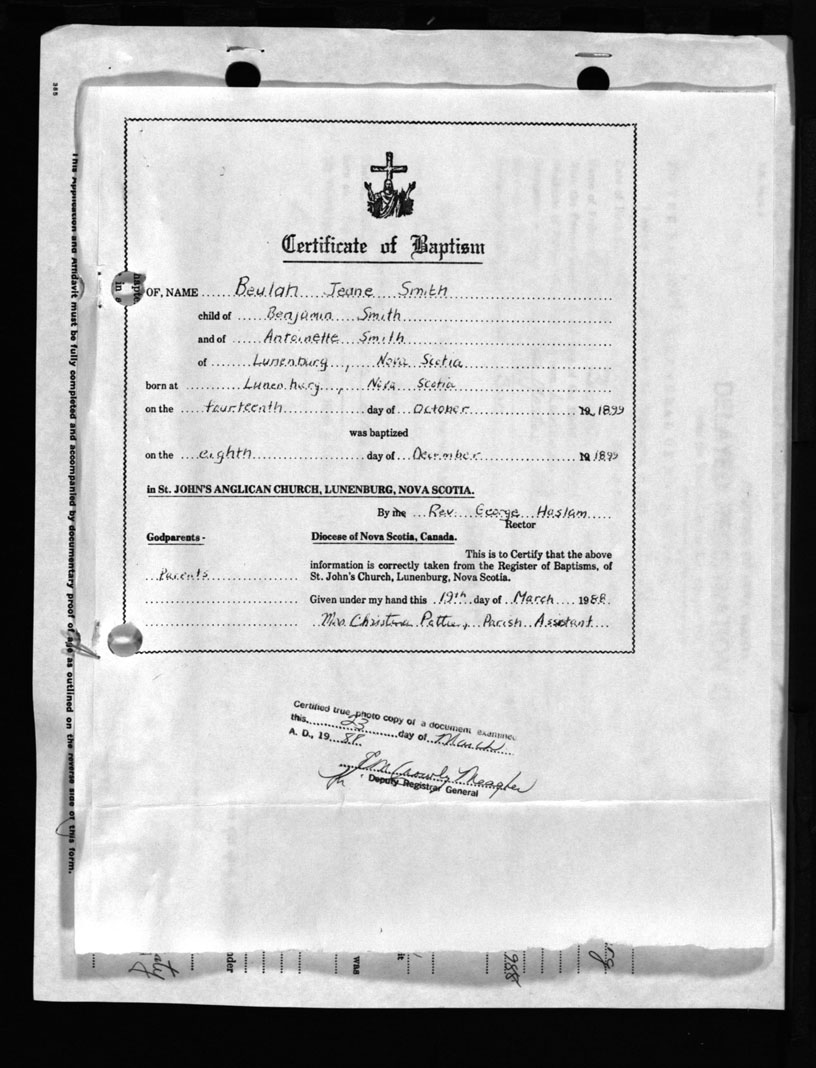 385
This Application and Affidavit must be fully completed and accompanied by documentary proof of age as outlined on the reverse side of this form.
Certificate of Baptism
OF, NAME Beulah Jeane Smith
child of Benjamin Smith
and of Antoinette Smith
of Lunenburg, Nova Scotia
born at Lunenburg, Nova Scotia
on the fourteenth day of October 19 1899
was baptized
on the eighth day of December 19 1899
in St. JOHN'S ANGLICAN CHURCH, LUNENBURG, NOVA SCOTIA.
By the Rev. George Haslam
Rector
Godparents -
Diocese of Nova Scotia, Canada.
Parents
This is to Certify that the above
information is correctly taken from the Register of Baptisms, of
St. John's Church, Lunenburg, Nova Scotia.
Given under my hand this 19th day of March 1988.
Mrs. Christena, Parish Assistant
Certified true photo copy of a document examined
this 23 day of March
A. D., 19 88
Meagher
Deputy Registrar General
under
was
it
1988